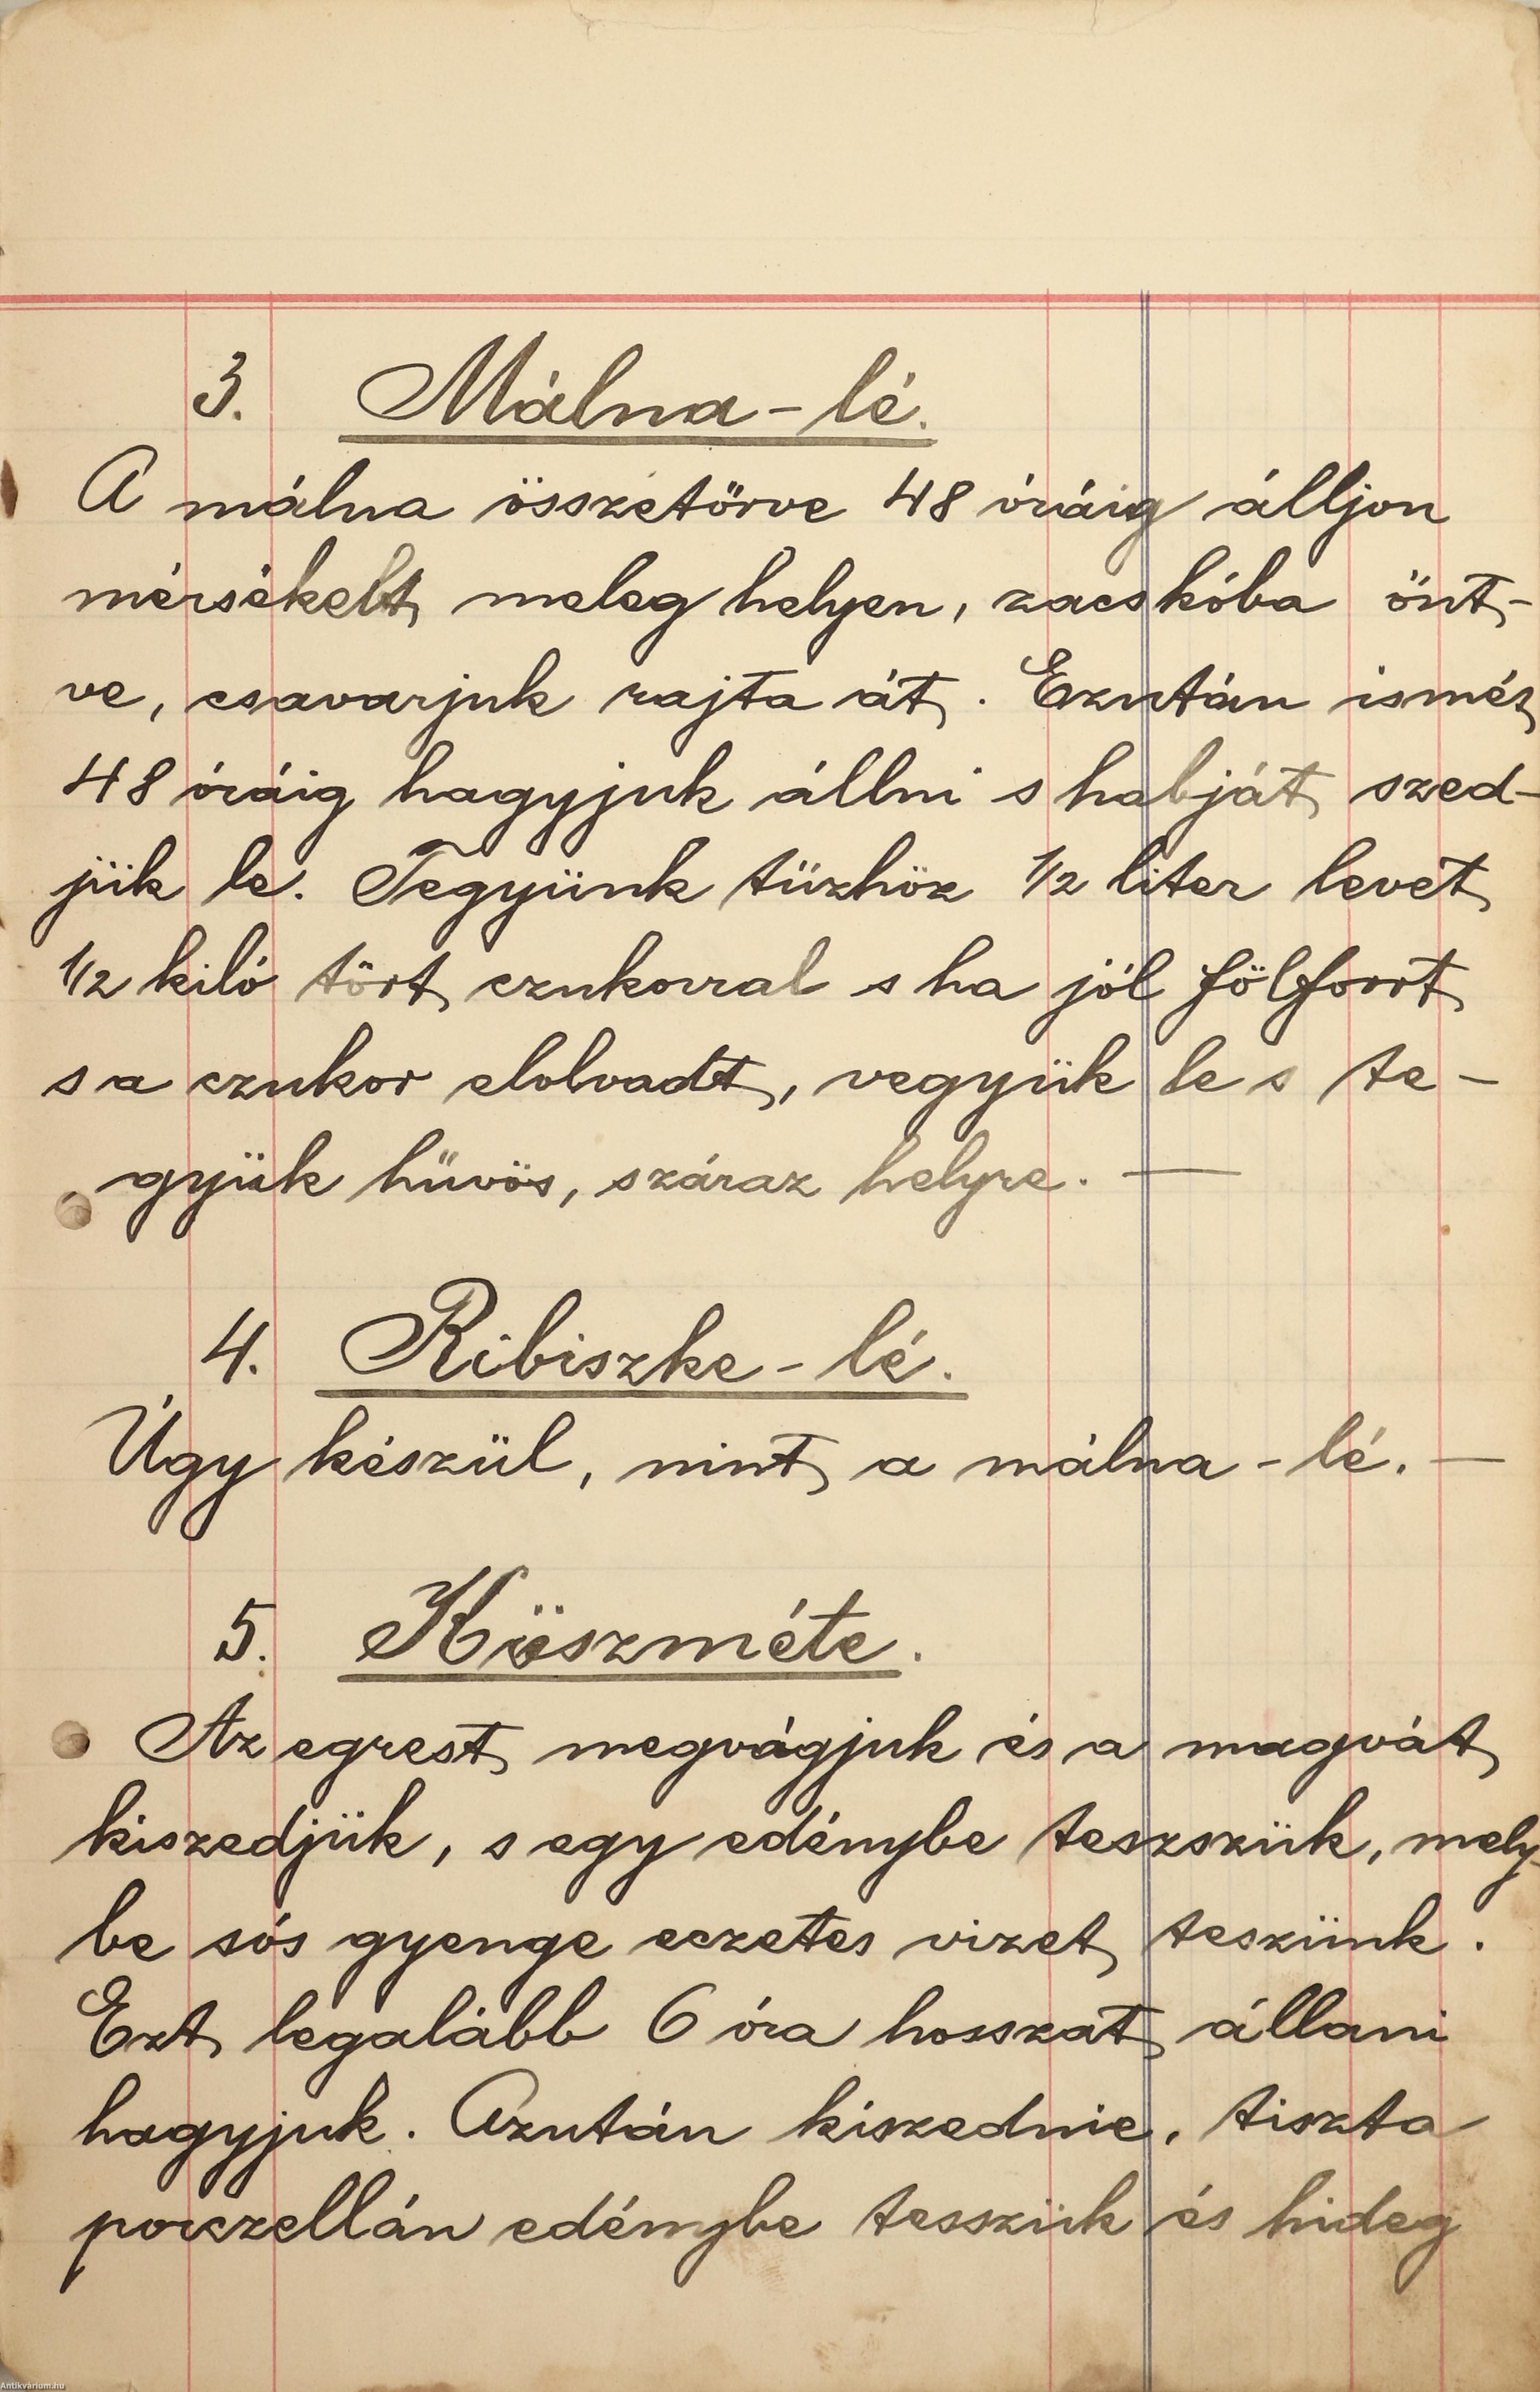 3. Málna-lé.
A málna összetörve 48 óráig álljon
mérsékelt meleg helyen, zacskóba önt-
ve, csavarjuk rajta át. Ezután ismét
48 óráig hagyjuk állni s habját szed-
jük le. Tegyünk tüzhöz 1/2 liter levet
1/2 kiló tört czukorral s ha jól fölforrt
s a czukor elolvadt, vegyük le s te-
gyük hüvös, száraz helyre. —
4. Ribiszke-lé.
Úgy készül, mint a málna-lé. —
5. Köszméte.
Az egrest megvágjuk és a magvát
kiszedjük, s egy edénybe teszszük, mely-
be sós gyenge eczetes vizet teszünk.
Ezt legalább 6 óra hosszat állani
hagyjuk. Azután kiszednie, tiszta
porczellán edénybe tesszük és hideg
Antikvarium.hu